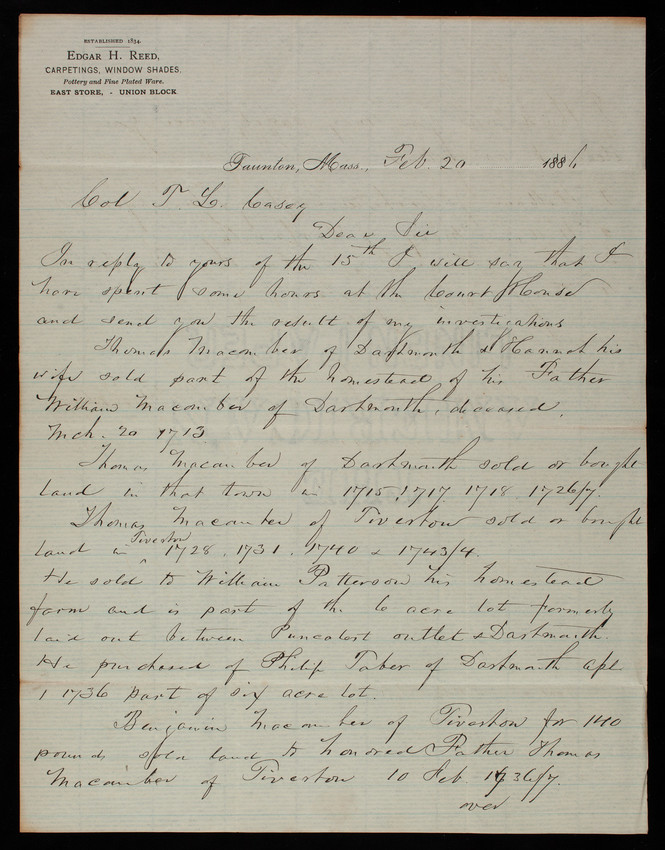 ESTABLISHED 1834.
EDGAR H. REED,
CARPETINGS, WINDOW SHADES.
Pottery and Fine Plated Ware.
EAST STORE, - UNION BLOCK
Taunton, Mass., Feb. 20 1886
Col T. L. Casey
Dear Sir
In reply to yours of the 15th I will say that I
have spent some hours at the Court House
and send you the result of my investigations
Thomas Macomber of Dartmouth & Hannah his
wife sold part of the homestead of his Father
William Macomber of Dartmouth, deceased,
Mch. 20 1713
Thomas Macomber of Dartmouth sold or bought
land in that town in 1715, 1717 1718 1726/7.
Thomas Macomber of Tiverton sold or bought
land in Tiverton 1728. 1731. 1740 & 1743/4.
He sold to William Patterson his homestead
farm and is part of the 6 acre lot formerly
laid out between Puncatest outlet & Dartmouth.
He purchased of Philip Taber of Dartmouth apl
1 1736 part of six acre lot.
Benjamin Macomber of Tiverton for 140
pounds sold land to honored Father Thomas
Macomber of Tiverton 10 Feb 1736/7.
over